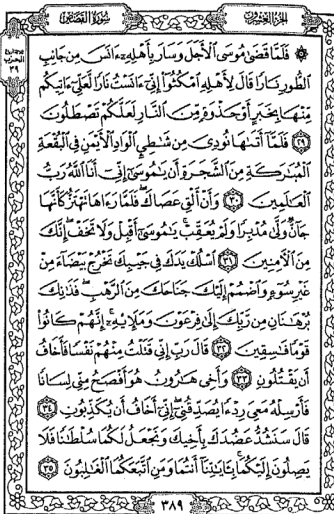 الجزء العشرون
سورة القصص
الحزب
٣٩
۞ فَلَمَّا قَضَىٰ مُوسَى ٱلْأَجَلَ وَسَارَ بِأَهْلِهِۦٓ ءَانَسَ مِن جَانِبِ
ٱلطُّورِ نَارًا قَالَ لِأَهْلِهِ ٱمْكُثُوٓا۟ إِنِّىٓ ءَانَسْتُ نَارًا لَّعَلِّىٓ ءَاتِيكُم
مِّنْهَا بِخَبَرٍ أَوْ جَذْوَةٍ مِّنَ ٱلنَّارِ لَعَلَّكُمْ تَصْطَلُونَ
٢٩ فَلَمَّآ أَتَىٰهَا نُودِىَ مِن شَٰطِئِ ٱلْوَادِ ٱلْأَيْمَنِ فِى ٱلْبُقْعَةِ
ٱلْمُبَٰرَكَةِ مِنَ ٱلشَّجَرَةِ أَن يَٰمُوسَىٰٓ إِنِّىٓ أَنَا ٱللَّهُ رَبُّ
ٱلْعَٰلَمِينَ ٣٠ وَأَنْ أَلْقِ عَصَاكَ ۖ فَلَمَّا رَءَاهَا تَهْتَزُّ كَأَنَّهَا
جَآنٌّ وَلَّىٰ مُدْبِرًا وَلَمْ يُعَقِّبْ ۚ يَٰمُوسَىٰٓ أَقْبِلْ وَلَا تَخَفْ ۖ إِنَّكَ
مِنَ ٱلْـَٔامِنِينَ ٣١ ٱسْلُكْ يَدَكَ فِى جَيْبِكَ تَخْرُجْ بَيْضَآءَ مِنْ
غَيْرِ سُوٓءٍ وَٱضْمُمْ إِلَيْكَ جَنَاحَكَ مِنَ ٱلرَّهْبِ ۖ فَذَٰنِكَ
بُرْهَٰنَانِ مِن رَّبِّكَ إِلَىٰ فِرْعَوْنَ وَمَلَإِي۟هِۦٓ ۚ إِنَّهُمْ كَانُوا۟
قَوْمًا فَٰسِقِينَ ٣٢ قَالَ رَبِّ إِنِّى قَتَلْتُ مِنْهُمْ نَفْسًا فَأَخَافُ
أَن يَقْتُلُونِ ٣٣ وَأَخِى هَٰرُونُ هُوَ أَفْصَحُ مِنِّى لِسَانًا
فَأَرْسِلْهُ مَعِىَ رِدْءًا يُصَدِّقُنِىٓ ۖ إِنِّىٓ أَخَافُ أَن يُكَذِّبُونِ ٣٤
قَالَ سَنَشُدُّ عَضُدَكَ بِأَخِيكَ وَنَجْعَلُ لَكُمَا سُلْطَٰنًا فَلَا
يَصِلُونَ إِلَيْكُمَا ۚ بِـَٔايَٰتِنَآ أَنتُمَا وَمَنِ ٱتَّبَعَكُمَا ٱلْغَٰلِبُونَ ٣٥
٣٨٩